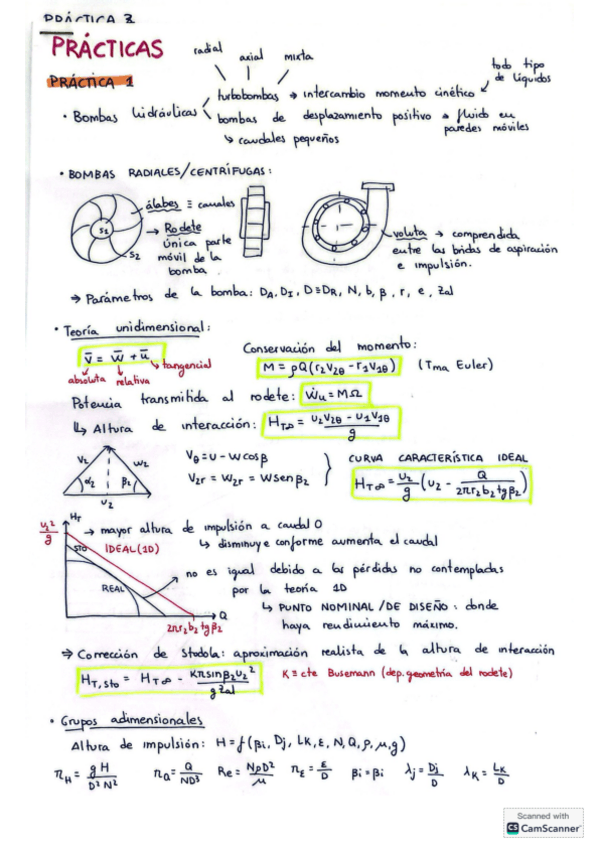 PRÁCTICA 2
PRÁCTICAS
PRÁCTICA 1
radial axial mixta
todo tipo de líquidos
• Bombas hidráulicas
turbobombas → intercambio momento cinético
bombas de desplazamiento positivo → fluido en paredes móviles
↳ caudales pequeños
• BOMBAS RADIALES/CENTRÍFUGAS:
S1
S2
álabes ≡ canales
→ Rodete
única parte
móvil de la
bomba.
voluta → comprendida
entre las bridas de aspiración
e impulsión.
⇒ Parámetros de la bomba: DA, DI, D≡DR, N, b, β, r, e, Zal
• Teoría unidimensional:
v̄ = w̄ + ū
absoluta relativa tangencial
Conservación del momento:
M = ρQ(r2V2θ - r1V1θ) (Tma Euler)
Potencia transmitida al rodete: Ẇu = MΩ
↳ Altura de interacción: HT∞ = (u2V2θ - u1V1θ)/g
V2 W2
α2 β2
U2
Vθ = u - w cosβ
V2r = W2r = W sen β2
CURVA CARACTERÍSTICA IDEAL
HT∞ = u2/g (u2 - Q/(2πr2b2tgβ2))
u2²/g
HT
STO
IDEAL (1D)
REAL
Q
2πr2b2tgβ2
→ mayor altura de impulsión a caudal 0
↳ disminuye conforme aumenta el caudal
no es igual debido a las pérdidas no contempladas
por la teoría 1D
↳ PUNTO NOMINAL/DE DISEÑO: donde
haya rendimiento máximo.
⇒ Corrección de Stodola: aproximación realista de la altura de interacción
HT,Sto = HT∞ - (Kπsinβ2u2²)/(g Zal)
K ≡ cte Busemann (dep. geometría del rodete)
• Grupos adimensionales
Altura de impulsión: H = f(βi, Dj, LK, ε, N, Q, ρ, μ, g)
πH = gH/(D²N²) πQ = Q/(ND³) Re = NρD²/μ πE = E/D βi = βi λj = Dj/D λK = LK/D
Scanned with
CS CamScanner